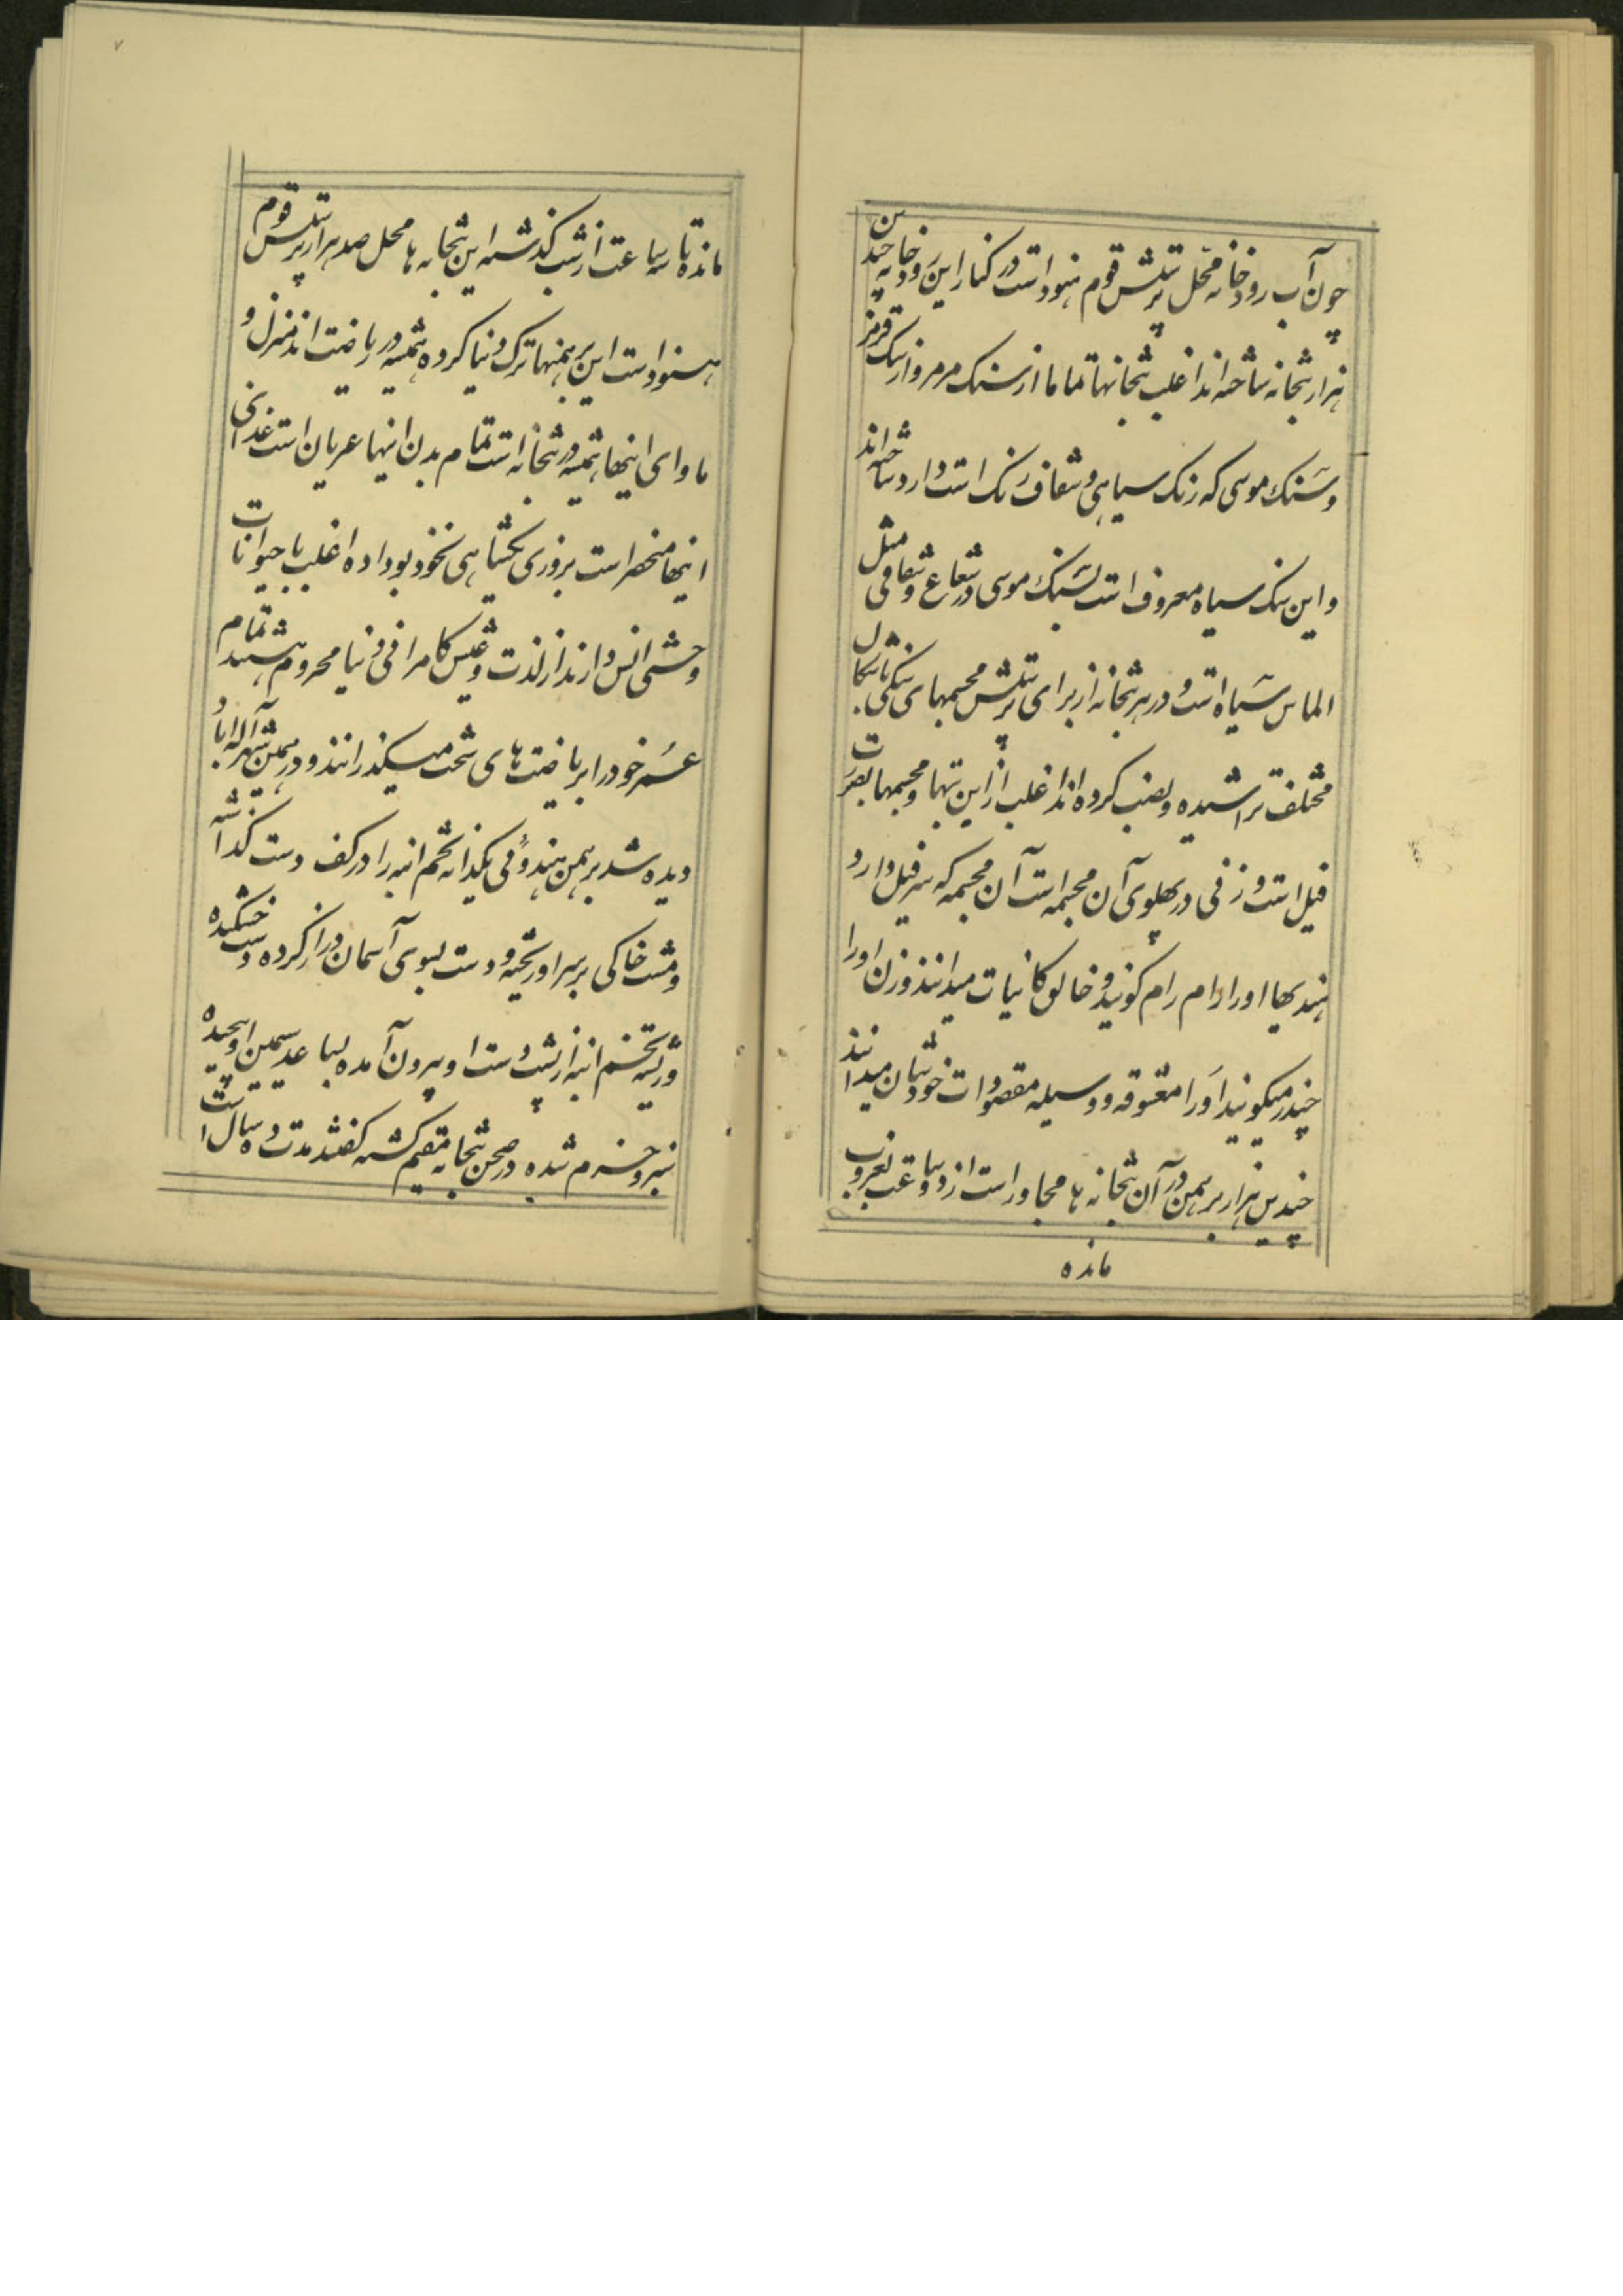 چون آب رودخانه محل پرستش قوم هنود است در کنار این رودخانه چندین
هزار بتخانه ساخته اند اغلب بتخانها تماما از سنک مرمر و از سنک قرمز
و سنک موسی که رنک سیاهی و شفاف رنک است دارد ساخته اند
و این سنک سیاه معروف است بسنک موسی در شعاع و شفافی مثل
الماس سیاه است و در هر بتخانه از برای پرستش مجسمهای سنکی باشکال
مختلف تراشیده و نصب کرده اند اغلب از این بتها و مجسمها بصورت
فیل است و زنی در پهلوی آن مجسمه است آن مجسمه که سر فیل دارد
هندیها او را رام رام کویند و خالق کاینات میدانند و زن او را
چندر میکویند او را معشوقه و وسیله مقصودات خودشان میدانند
چندین هزار برهمن در آن بتخانه ها مجاور است از دو ساعت بغروب
مانده
۷
مانده تا سه ساعت از شب کذشته این بتخانه ها محل صد هزار پرستش قوم
هنود است این برهمنها ترک دنیا کرده همیشه در ریاضت اند منزل و
ماوای اینها همیشه در بتخانه است تمام بدن اینها عریان است غذای
اینها منحصر است بروزی یکشاهی نخود بو داده اغلب با حیوانات
وحشی انس دارند از لذت و عیش کامرانی دنیا محروم هستند تمام
عمر خود را بریاضت های سخت میکذرانند و در همین شهر اله اباد
دیده شد برهمن هندوئی یکدانه تخم انبه را در کف دست کذاشته
و مشت خاکی بر سر او ریخته و دست بسوی آسمان دراز کرده دست خشکیده
و ریشه تخم انبه از پشت دست او بیرون آمده بساعد سیمین او پیچیده
سبز و خرم شده در صحن بتخانه مقیم کشته کفتند مدت ده سال است